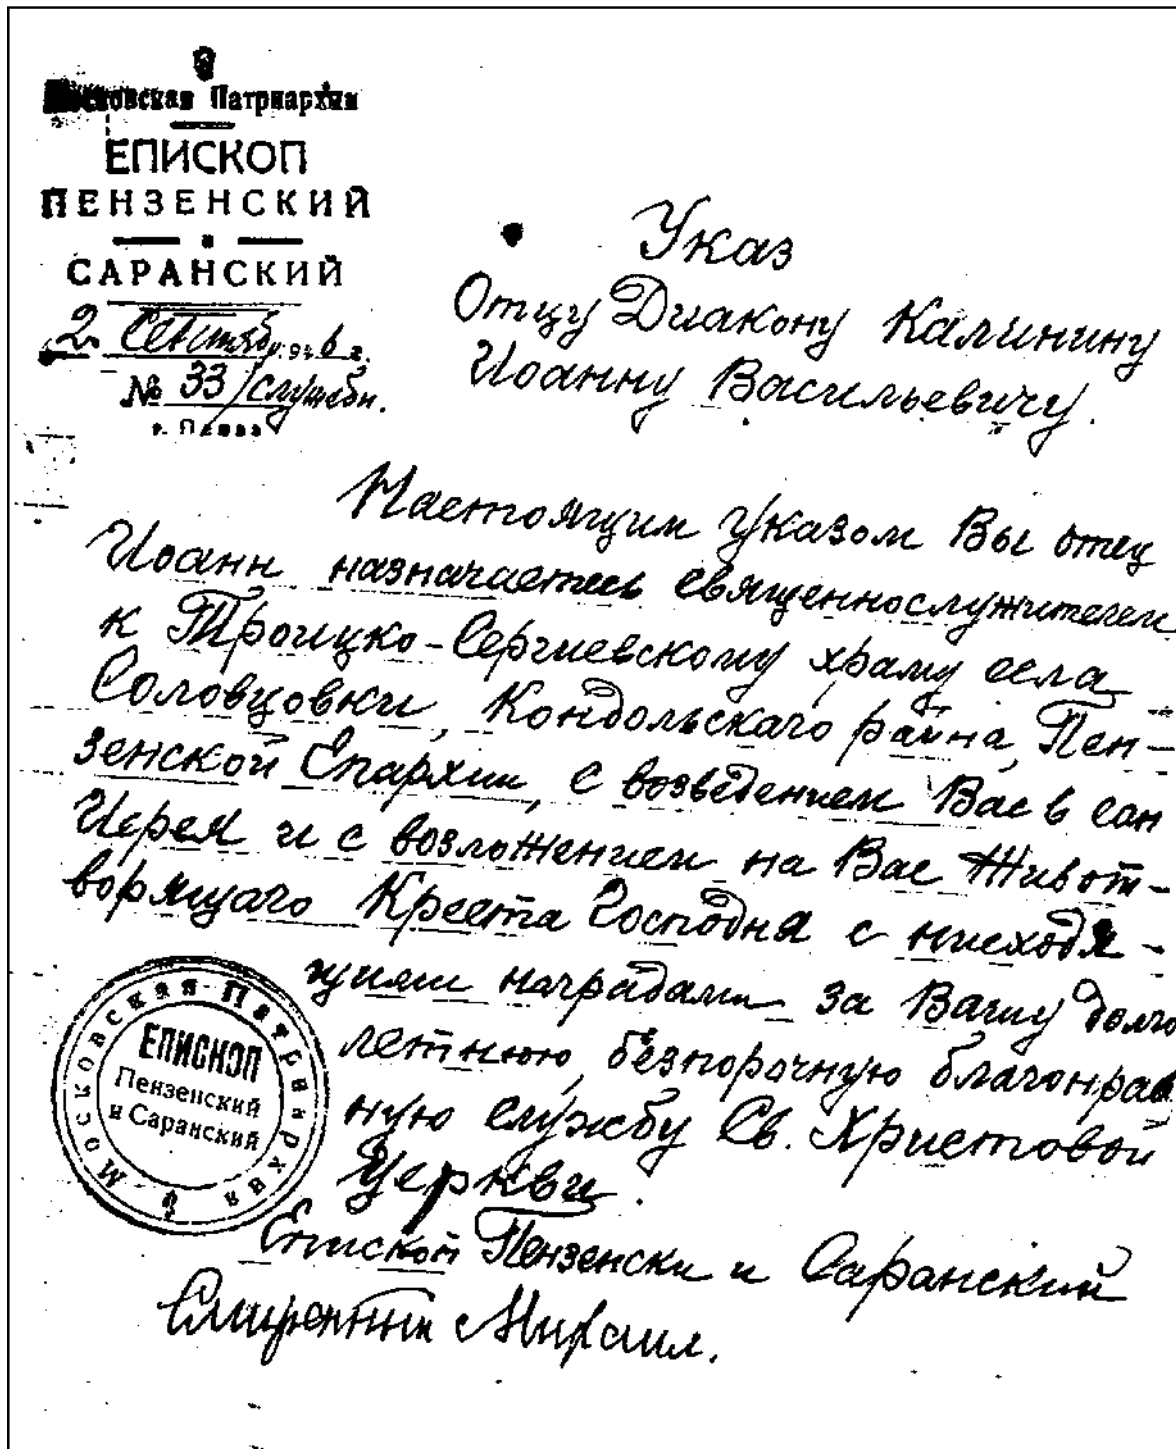 Московская Патриархия
ЕПИСКОП
ПЕНЗЕНСКИЙ
и
САРАНСКИЙ
2 Сентябр 1946 г.
№ 33/служебн.
г. Пенза
Указ
Отцу Диакону Калинину
Иоанну Васильевичу.
Настоящим Указом Вы отец
Иоанн назначаетесь священнослужителем
к Троицко-Сергиевскому храму села
Соловцовки, Кондольскаго райна, Пен-
зенской Епархии, с возведением Вас в сан
Иерея и с возложением на Вас Живот-
ворящаго Креста Господня с нисходя-
щими наградами за Вашу долго
летнюю, безпорочную благонрав
ную службу Св. Христовой
Церкви.
Епископ Пензенски и Саранский
Смиренный Михаил.
Московская Патриархия
ЕПИСКОП
Пензенский
и Саранский